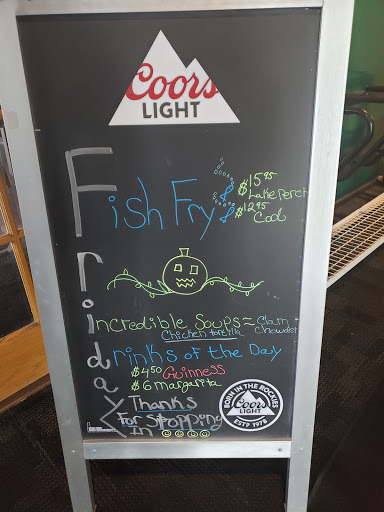 Coors
LIGHT
Friday
Fish Fry
$15.95
Lake Perch
$12.95
Cod
Incredible Soups = Clam
Chowder
Chicken tortilla
Drinks of the Day
$4.50 Guinness
$6 margarita
Thanks
For Stopping
In
BORN IN THE ROCKIES
Coors
LIGHT
ESTD 1978